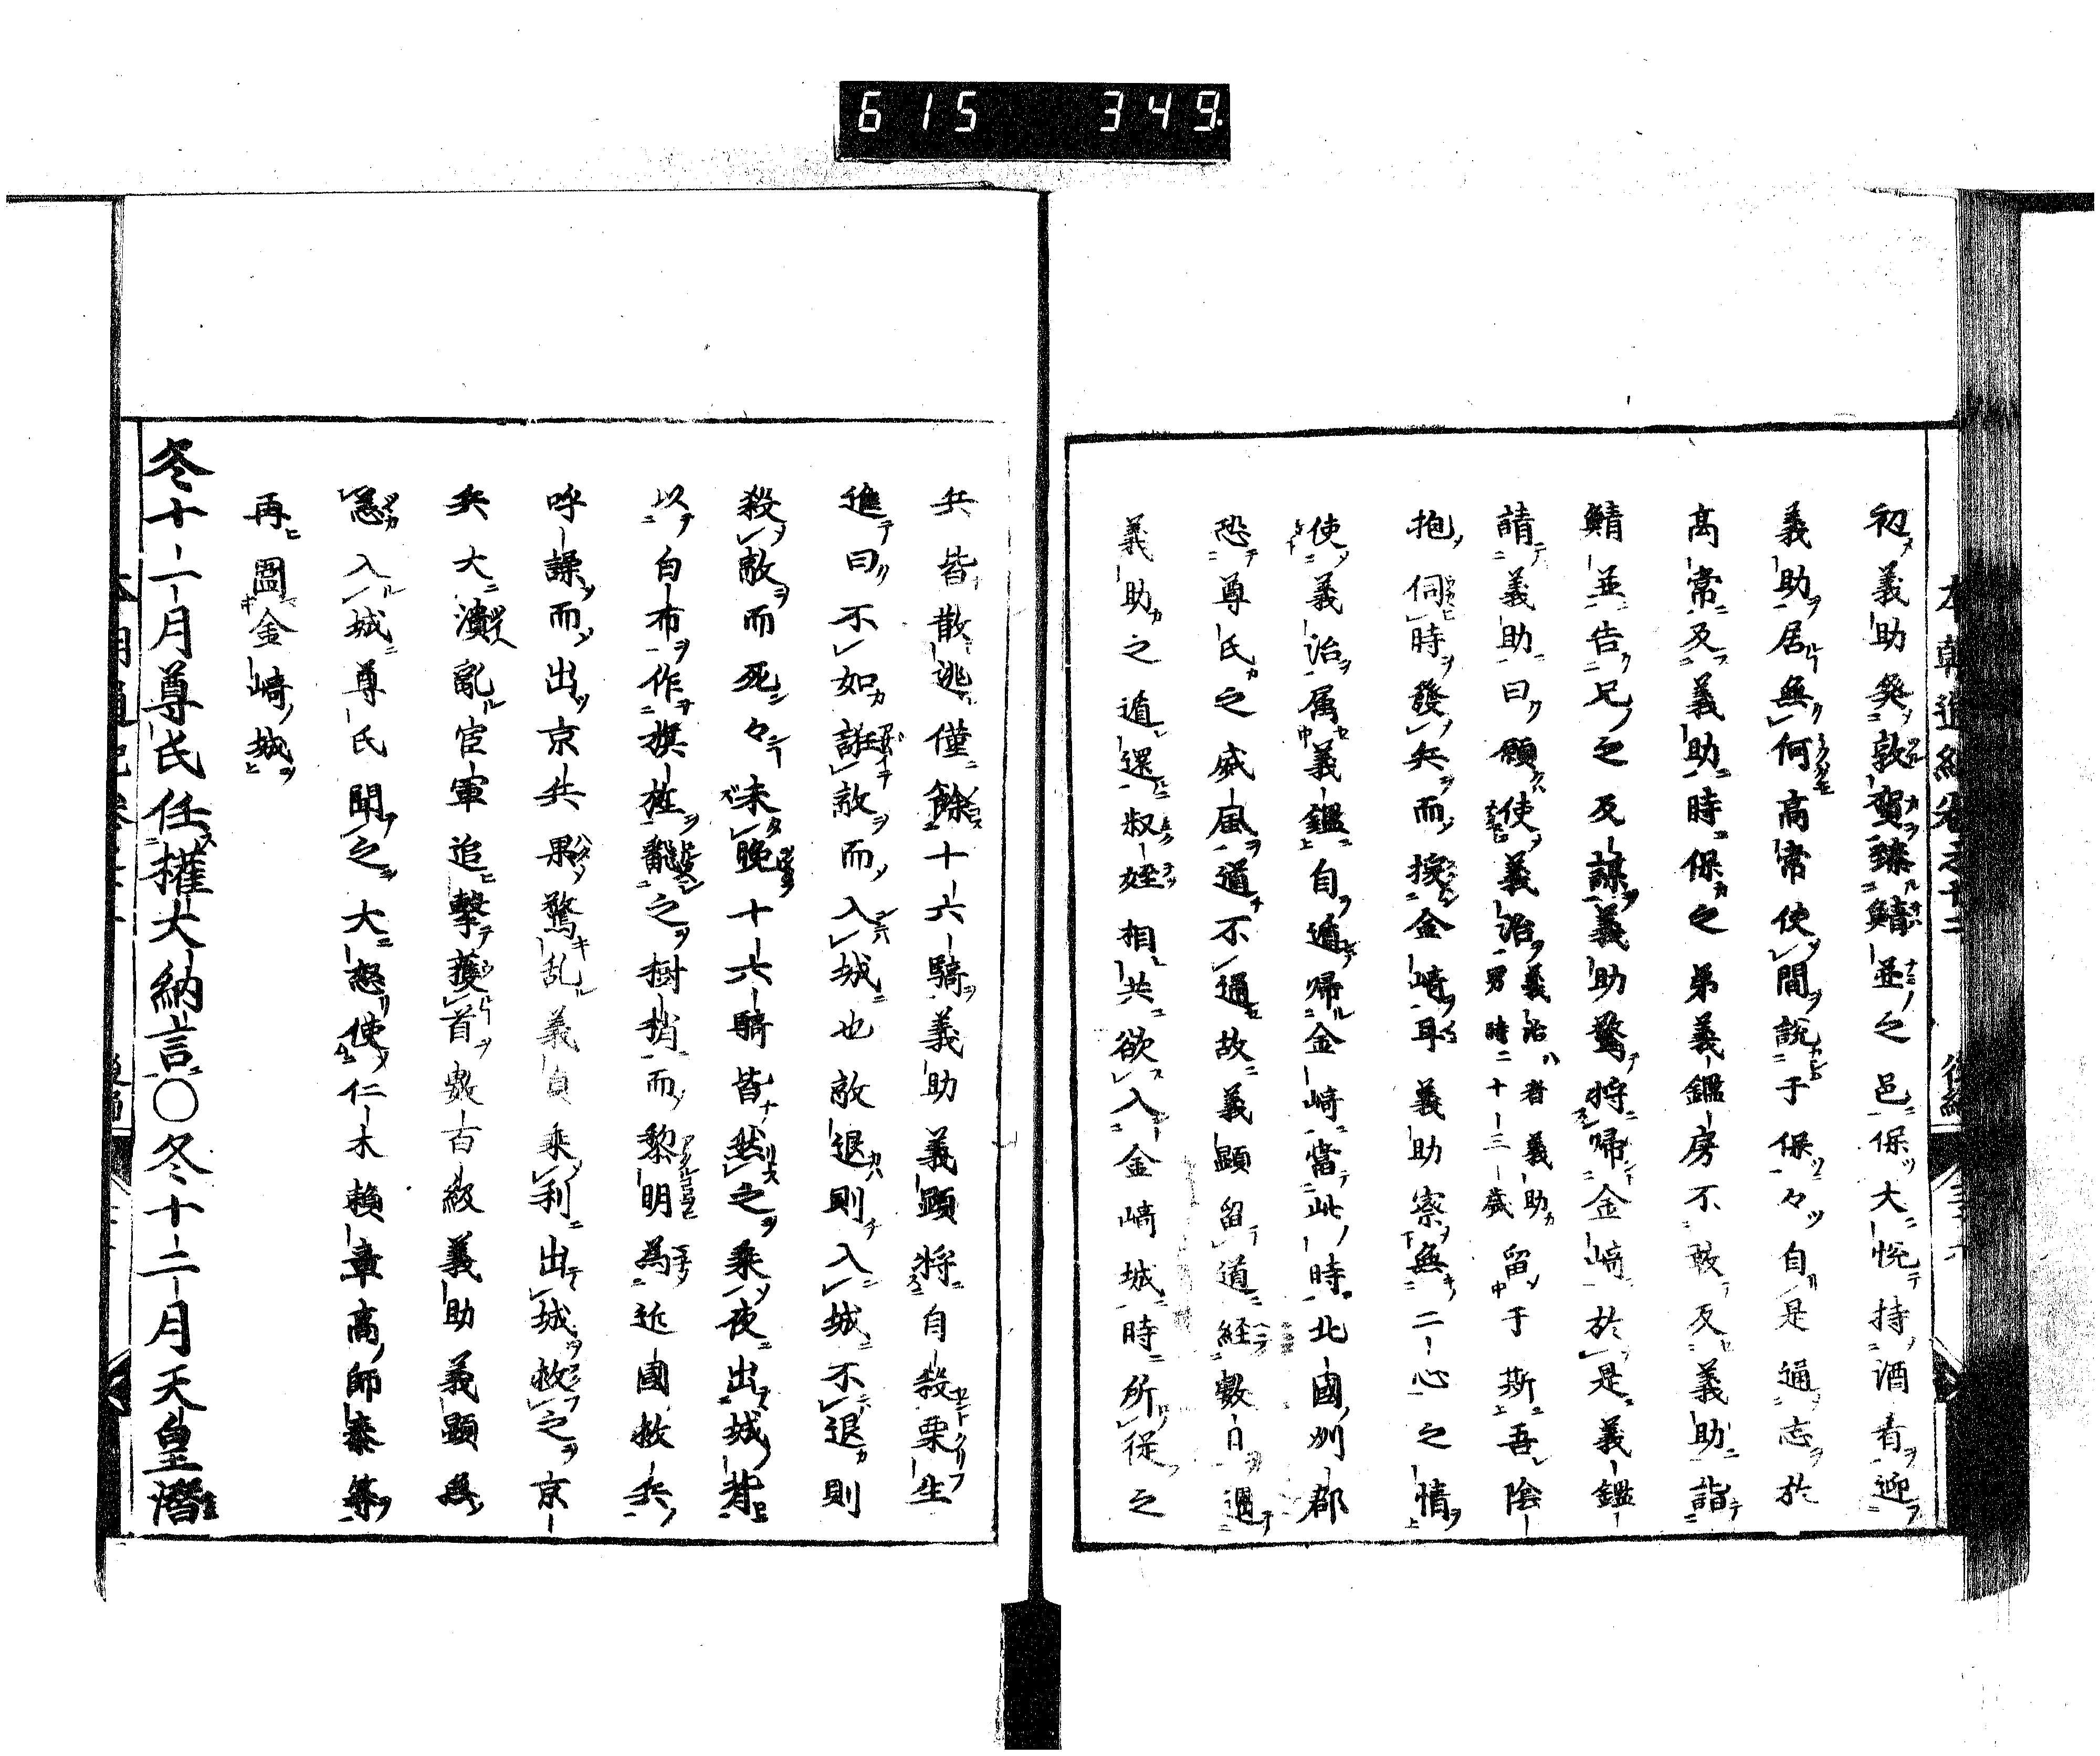 615 349
初義助発敦賀臻鯖並之邑保大悦持酒肴迎
義助居無何高常使間説于保々自是通志於
高常及義助時保之弟義鑑房不敢及義助詣
鯖並告兄之及謀義助驚将帰金崎於是義鑑
請義助曰願使義治義治者義助男時二十三歳留于斯吾陰
抱伺時發兵而援金崎耳義助察無二心之情
使義治属義鑑自遁帰金崎當此時北國州郡
恐尊氏之威風道不通故義顕留道経數日遇
義助之遁還叔姪相共欲入金崎城時所従之
兵皆散逃僅餘十六騎義助義顕将自殺栗生
進曰不如誑敵而入城也敵退則入城不退則
殺敵而死々未晩十六騎皆然之乗夜出城背
以自布作旗旌翻之樹梢而黎明為近國救兵
呼譟而出京兵果驚乱義貞乗利出城救之京
兵大潰亂官軍追撃獲首數百級義助義顕無
恙入城尊氏聞之大怒使仁木頼章高師泰等
再圍金崎城
冬十一月尊氏任權大納言〇冬十二月天皇潛